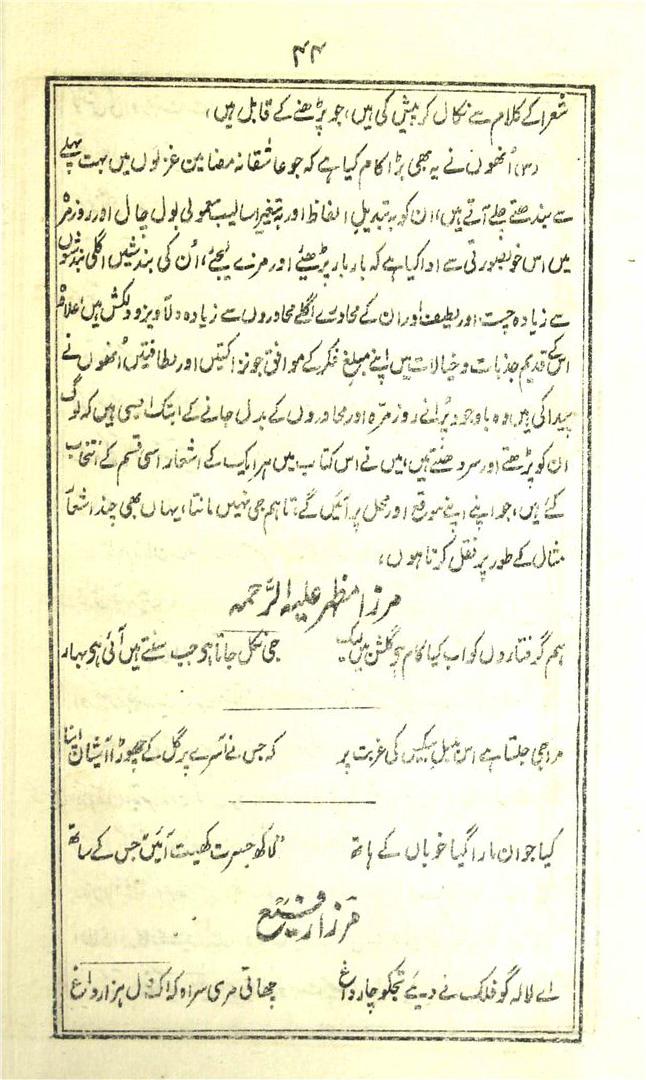 ۴۴
شعرا کے کلام سے نکال کر پیش کی ہیں، جو پڑھنے کے قابل ہیں،
(۳) اُنھوں نے یہ بھی بڑا کام کیا ہے کہ جو عاشقانہ مضامین غزلوں میں بہت پہلے
سے بندھتے چلے آتے ہیں، ان کو بہ تبدیلِ الفاظ اور بہ تغیرِ اسالیب معمولی بول چال اور روز مرہ
میں اس خوبصورتی سے ادا کیا ہے کہ بار بار پڑھیئے اور مزے لیجئے، اُن کی بندشیں اگلی بندشوں
سے زیادہ چست اور لطیف اور ان کے محاورے اگلے محاوروں سے زیادہ دلآویز و دلکش ہیں، علاوہ
اس کے قدیم جذبات و خیالات میں اپنے مبلغِ فکر کے موافق جو نزاکتیں اور لطافتیں اُنھوں نے
پیدا کی ہیں وہ باوجود پُرانے روز مرّہ اور محاوروں کے بدل جانے کے ابتک ایسی ہیں کہ لوگ
ان کو پڑھتے اور سر دھنتے ہیں، میں نے اس کتاب میں ہر ایک کے اشعار اسی قسم کے انتخاب
کئے ہیں، جو اپنے اپنے موقع اور محل پر آئیں گے، تاہم جی نہیں مانتا، یہاں بھی چند اشعار
مثال کے طور پر نقل کرتا ہوں،
مرزا مظہر علیہ الرّحمہ
ہم گرفتاروں کو اب کیا کام ہو گلشن میں لیک جی نکل جاتا ہو جب سنتے ہیں آئی ہو بہار
مرا جی جلتا ہے اس بلبلِ بیکس کی غربت پر کہ جس نے آسرے پر گل کے چھوڑا آشیاں اپنا
کیا جوان مارا گیا خوباں کے ہاتھ لاکھ حسرت کھیت آئیں جس کے ساتھ
مرزا رفیع
اے لالہ گو فلک نے دیئے تجکو چار داغ چھاتی مری سراہ کہ اک دل ہزار داغ